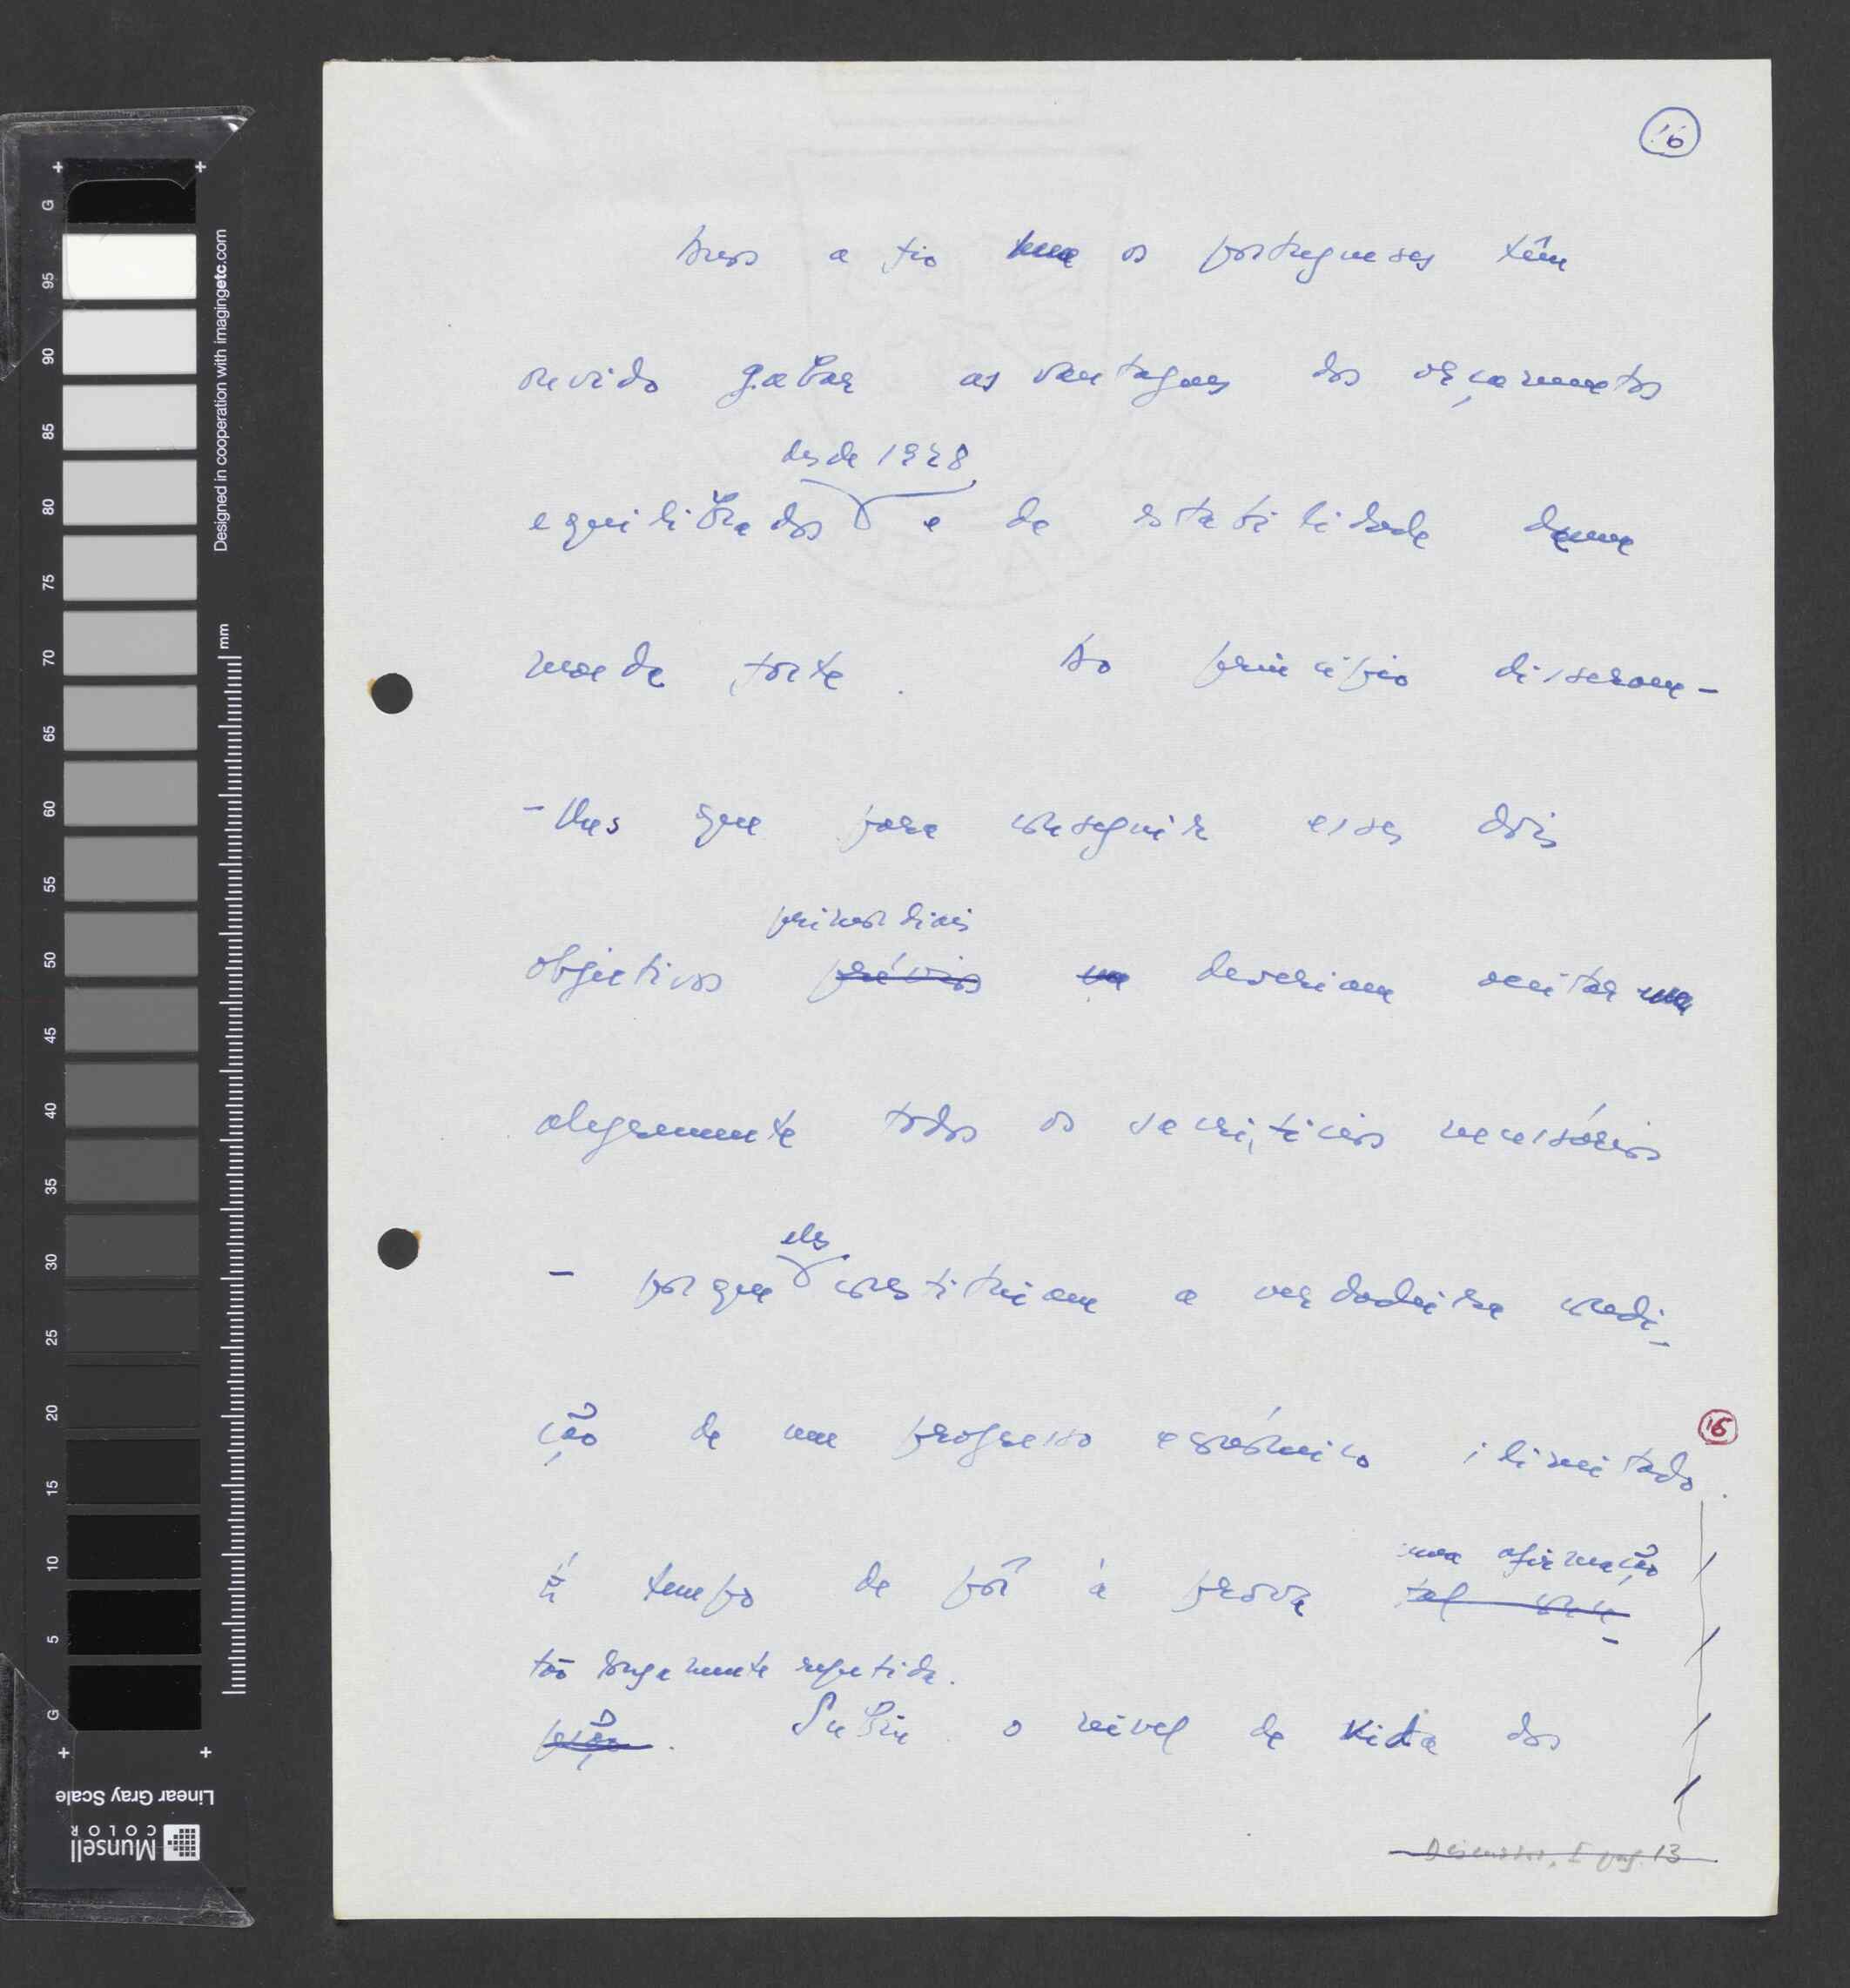 16
anos a fio os portugueses têm
ouvido gabar as vantagens dos orçamentos
desde 1928
equilibrados e da estabilidade duma
moeda forte. Ao princípio disseram-
-lhes que para conseguir esses dois
primordiais
objectivos prévios deveriam aceitar
alegremente todos os sacrifícios necessários
eles
- porque constituiam a verdadeira condi-
ção de um progresso económico ilimitado.
16
É tempo de pôr à prova tal
uma afirmação
tão longamente repetida.
Subiu o nível de vida dos
Discursos, I pag. 13
G 95 90 85 80 75 70 65 60 55 50 45 40 35 30 25 20 15 10 5 G
mm
Designed in cooperation with imagingetc.com
Linear Gray Scale
Munsell
COLOR